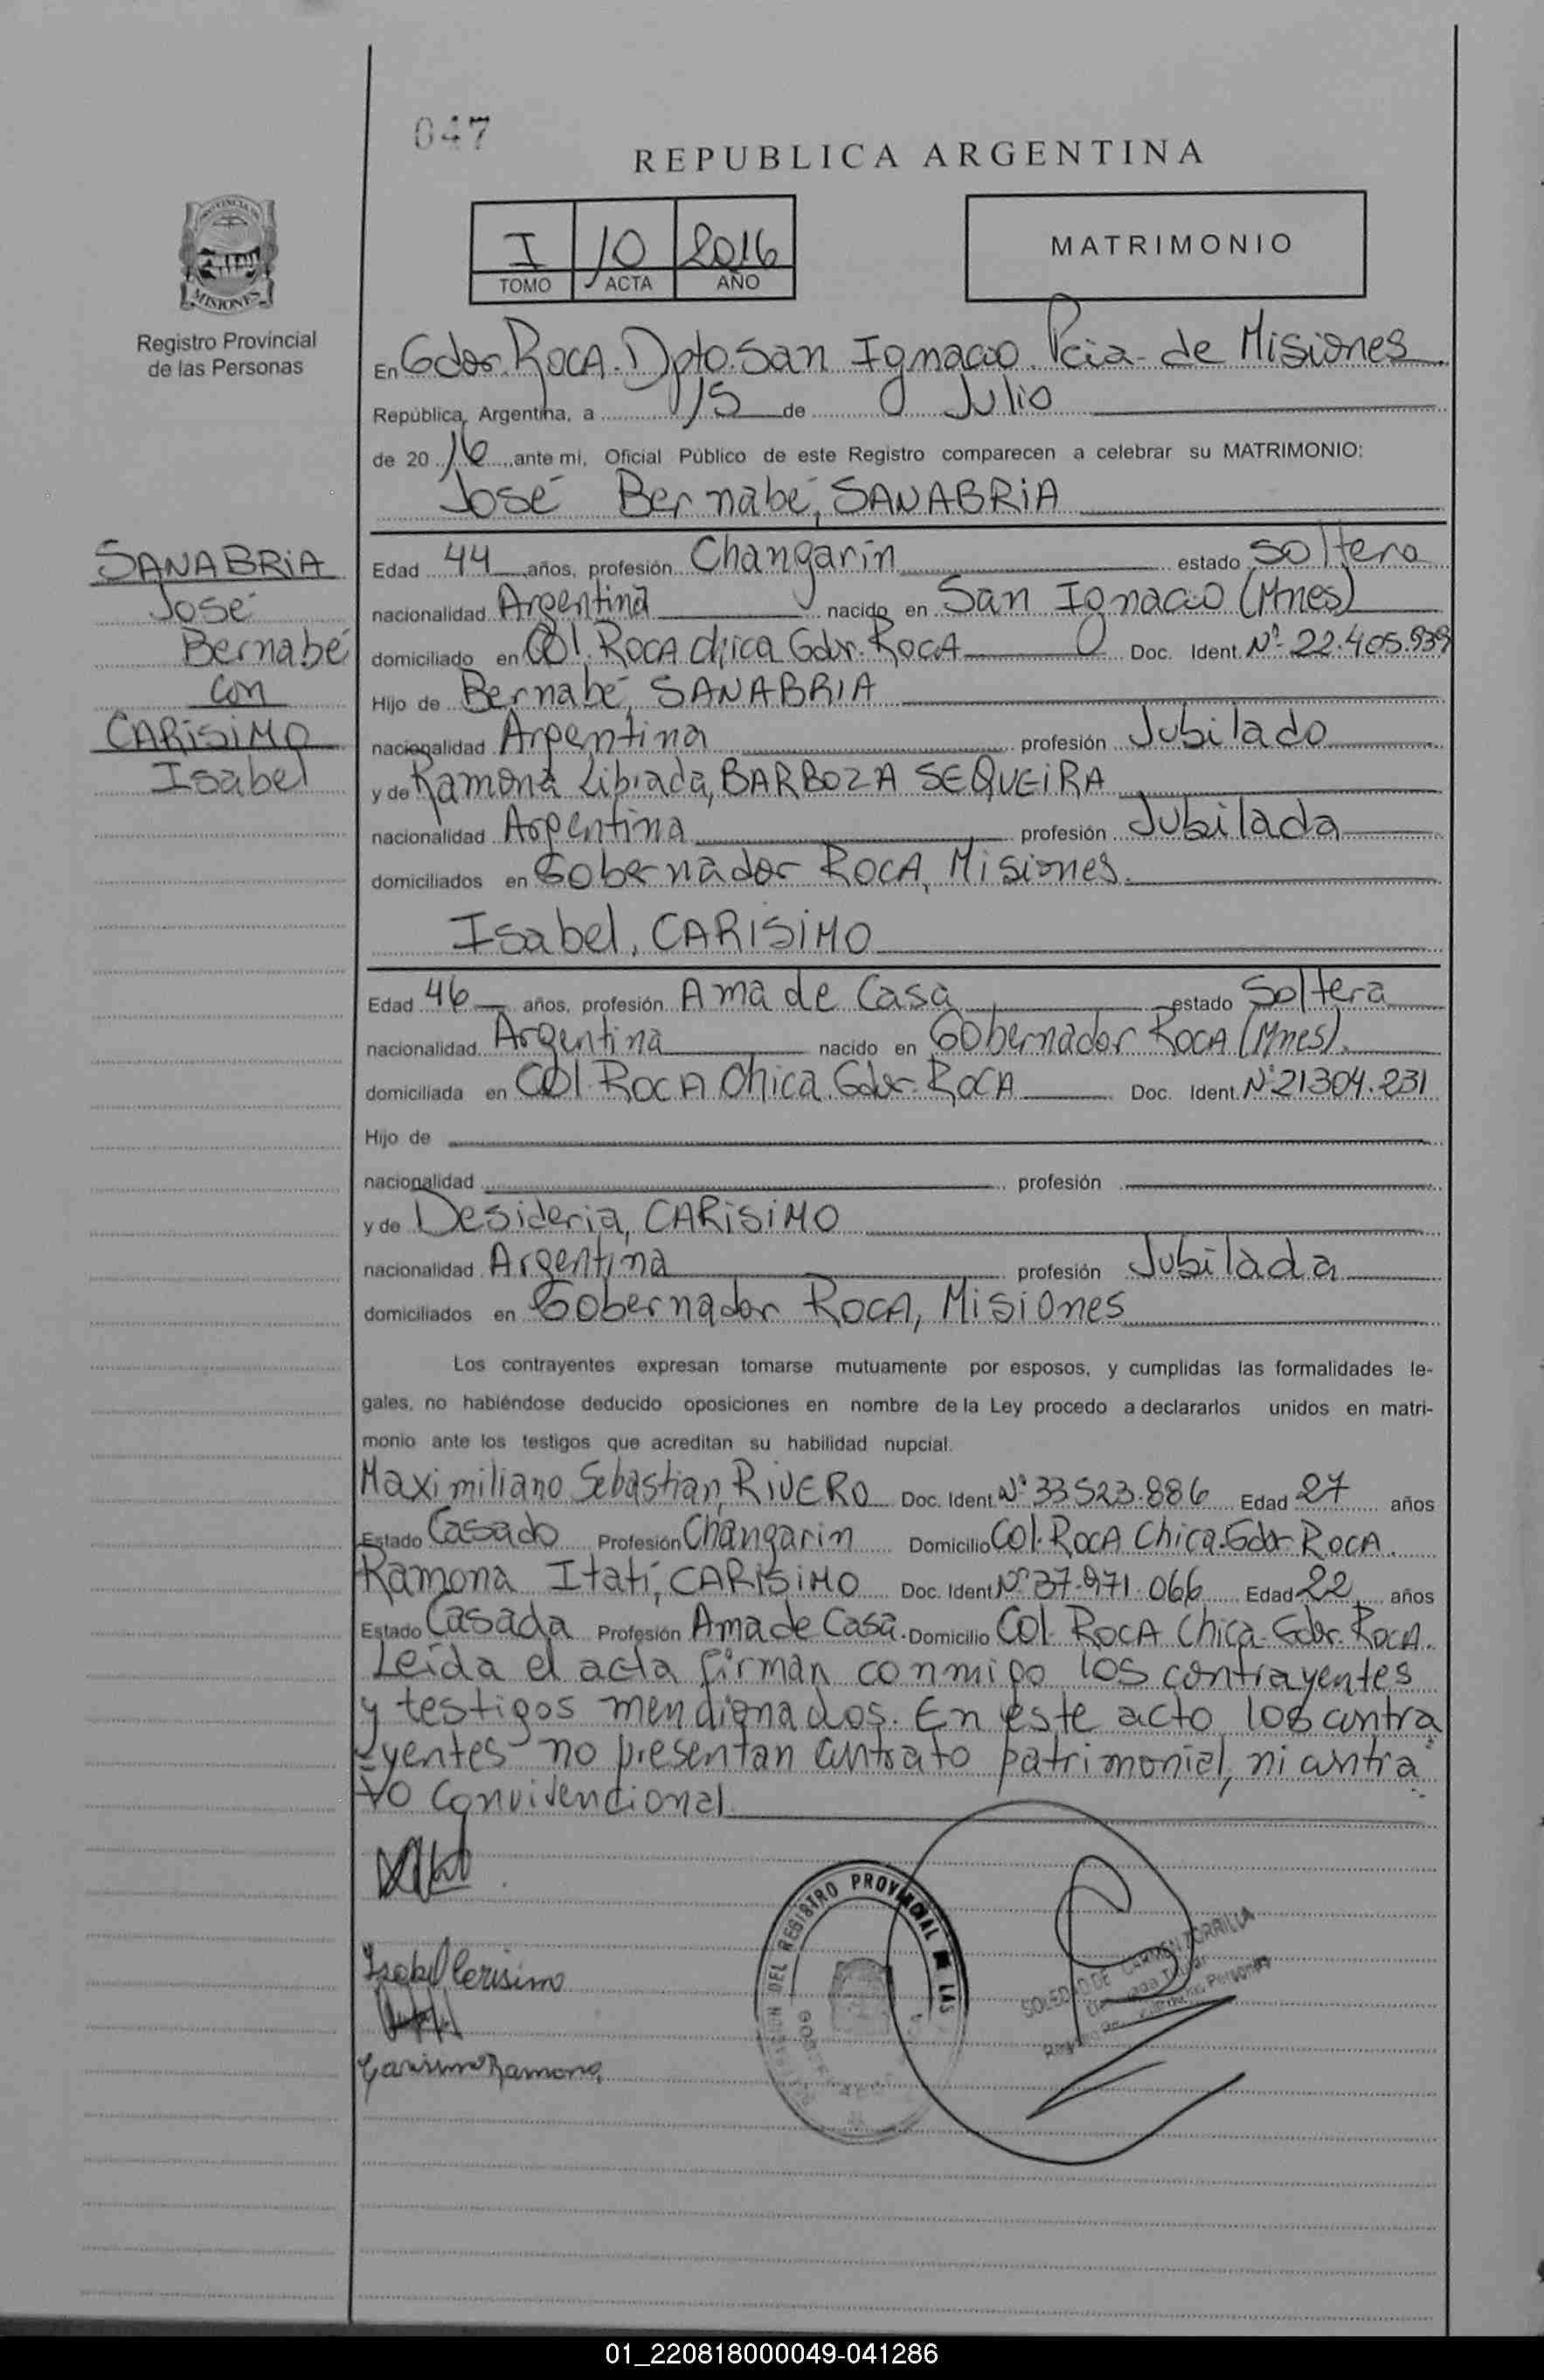 047
REPUBLICA ARGENTINA
I 10 2016
TOMO ACTA AÑO
MATRIMONIO
PROVINCIA DE
MISIONES
Registro Provincial
de las Personas
En Gdor. ROCA. Dpto. San Ignacio. Pcia de Misiones
República Argentina, a 15 de Julio
de 20 16 ante mi, Oficial Público de este Registro comparecen a celebrar su MATRIMONIO:
José Bernabé, SANABRIA
SANABRIA
José
Bernabé
con
CARISIMO
Isabel
Edad 44 años, profesión Changarin estado Soltero
nacionalidad Argentina nacido en San Ignacio (Mnes)
domiciliado en Col. ROCA chica Gdor. ROCA Doc. Ident. Nº 22.405.939
Hijo de Bernabé, SANABRIA
nacionalidad Argentina profesión Jubilado
y de Ramona Librada, BARBOZA SEQUEIRA
nacionalidad Argentina profesión Jubilada
domiciliados en Gobernador ROCA, Misiones.
Isabel, CARISIMO
Edad 46 años, profesión Ama de Casa estado Soltera
nacionalidad Argentina nacido en Gobernador ROCA (Mnes).
domiciliada en Col. ROCA Chica. Gdor. ROCA Doc. Ident. Nº 21304.231
Hijo de
nacionalidad profesión
y de Desideria, CARISIMO
nacionalidad Argentina profesión Jubilada
domiciliados en Gobernador ROCA, Misiones
Los contrayentes expresan tomarse mutuamente por esposos, y cumplidas las formalidades le-
gales, no habiéndose deducido oposiciones en nombre de la Ley procedo a declararlos unidos en matri-
monio ante los testigos que acreditan su habilidad nupcial.
Maximiliano Sebastian, RIVERO Doc. Ident Nº 33523.886 Edad 27 años
Estado Casado Profesión Changarin Domicilio Col. ROCA Chica. Gdor ROCA.
Ramona Itatí, CARISIMO Doc. Ident Nº 37.971.066 Edad 22 años
Estado Casada Profesión Ama de Casa. Domicilio Col. ROCA Chica. Gdor. ROCA.
Leída el acta firman conmigo los contrayentes
y testigos mencionados. En este acto los contra
-yentes no presentan contrato patrimonial, ni contra
to convivencional
Isabel Carisimo
Carisimo Ramona
DEL REGISTRO PROVINCIAL DE LAS
SOLEDAD DE CARMEN ZORRILLA
01_220818000049-041286